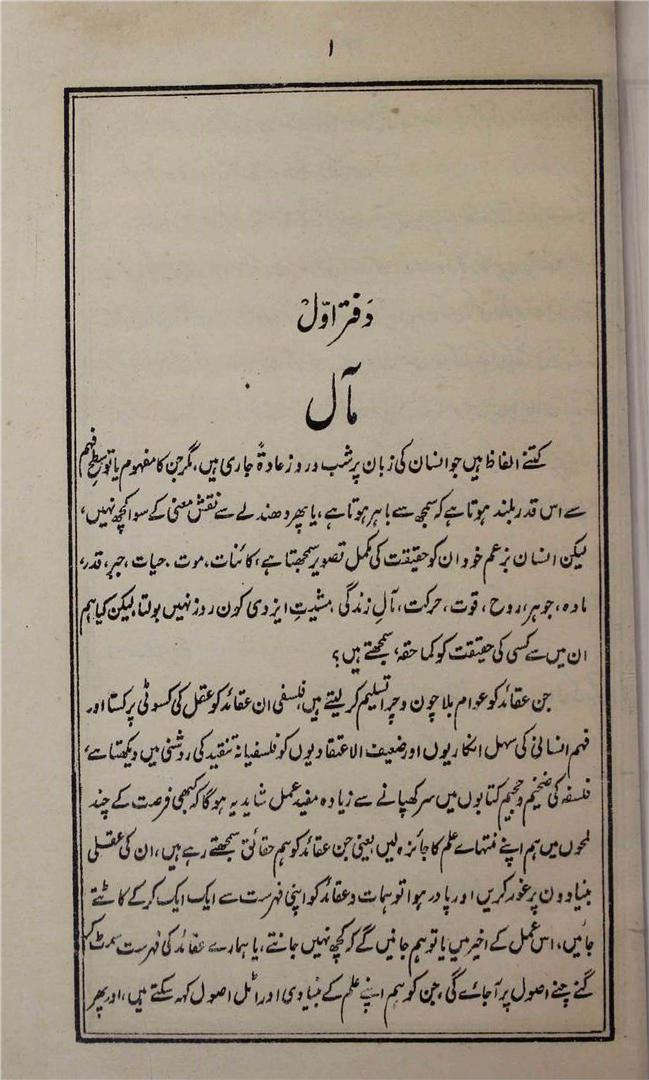 ۱
دَفتر اوّل
مآل
کتنے الفاظ ہیں جو انسان کی زبان پر شب و روز عادۃً جاری ہیں، مگر جن کا مفہوم یا تو سطحِ فہم
سے اس قدر بلند ہوتا ہے کہ سمجھ سے باہر ہوتا ہے، یا پھر دھندلے سے نقش معنی کے سوا کچھ نہیں،
لیکن انسان بزعم خود ان کو حقیقت کی مکمل تصویر سمجھتا ہے، کائنات، موت، حیات، جبر، قدر،
مادہ، جوہر، روح، قوت، حرکت، مآلِ زندگی، مشیتِ ایزدی کون روز نہیں بولتا، لیکن کیا ہم
ان میں سے کسی کی حقیقت کو کما حقہٗ سمجھتے ہیں؟
جن عقائد کو عوام بلا چون و چرا تسلیم کر لیتے ہیں، فلسفی ان عقائد کو عقل کی کسوٹی پر کستا اور
فہم انسانی کی سہل انکاریوں اور ضعیف الاعتقادیوں کو فلسفیانہ تنقید کی روشنی میں دیکھتا ہے،
فلسفہ کی ضخیم و حجیم کتابوں میں سر کھپانے سے زیادہ مفید عمل شاید یہ ہو گا کہ کبھی فرصت کے چند
لمحوں میں ہم اپنے منتہاے علم کا جائزہ لیں یعنی جن عقائد کو ہم حقائق سمجھتے رہے ہیں، ان کی عقلی
بنیادوں پر غور کریں اور پا در ہوا توہمات و عقائد کو اپنی فہرست سے ایک ایک کر کے کاٹتے
جائیں، اس عمل کے اخیر میں یا تو ہم جانیں گے کہ کچھ نہیں جانتے، یا ہمارے عقائد کی فہرست سمٹ کر
گنے چنے اصول پر آ جائے گی، جن کو ہم اپنے علم کے بنیادی اور اٹل اصول کہہ سکتے ہیں، اور پھر